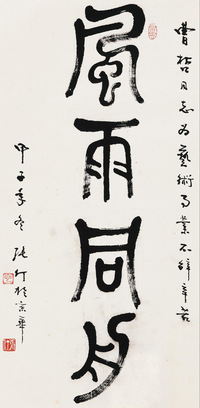 曹哲同志为藝術事業不辞辛苦
風雨同舟
甲子年冬张仃於京華